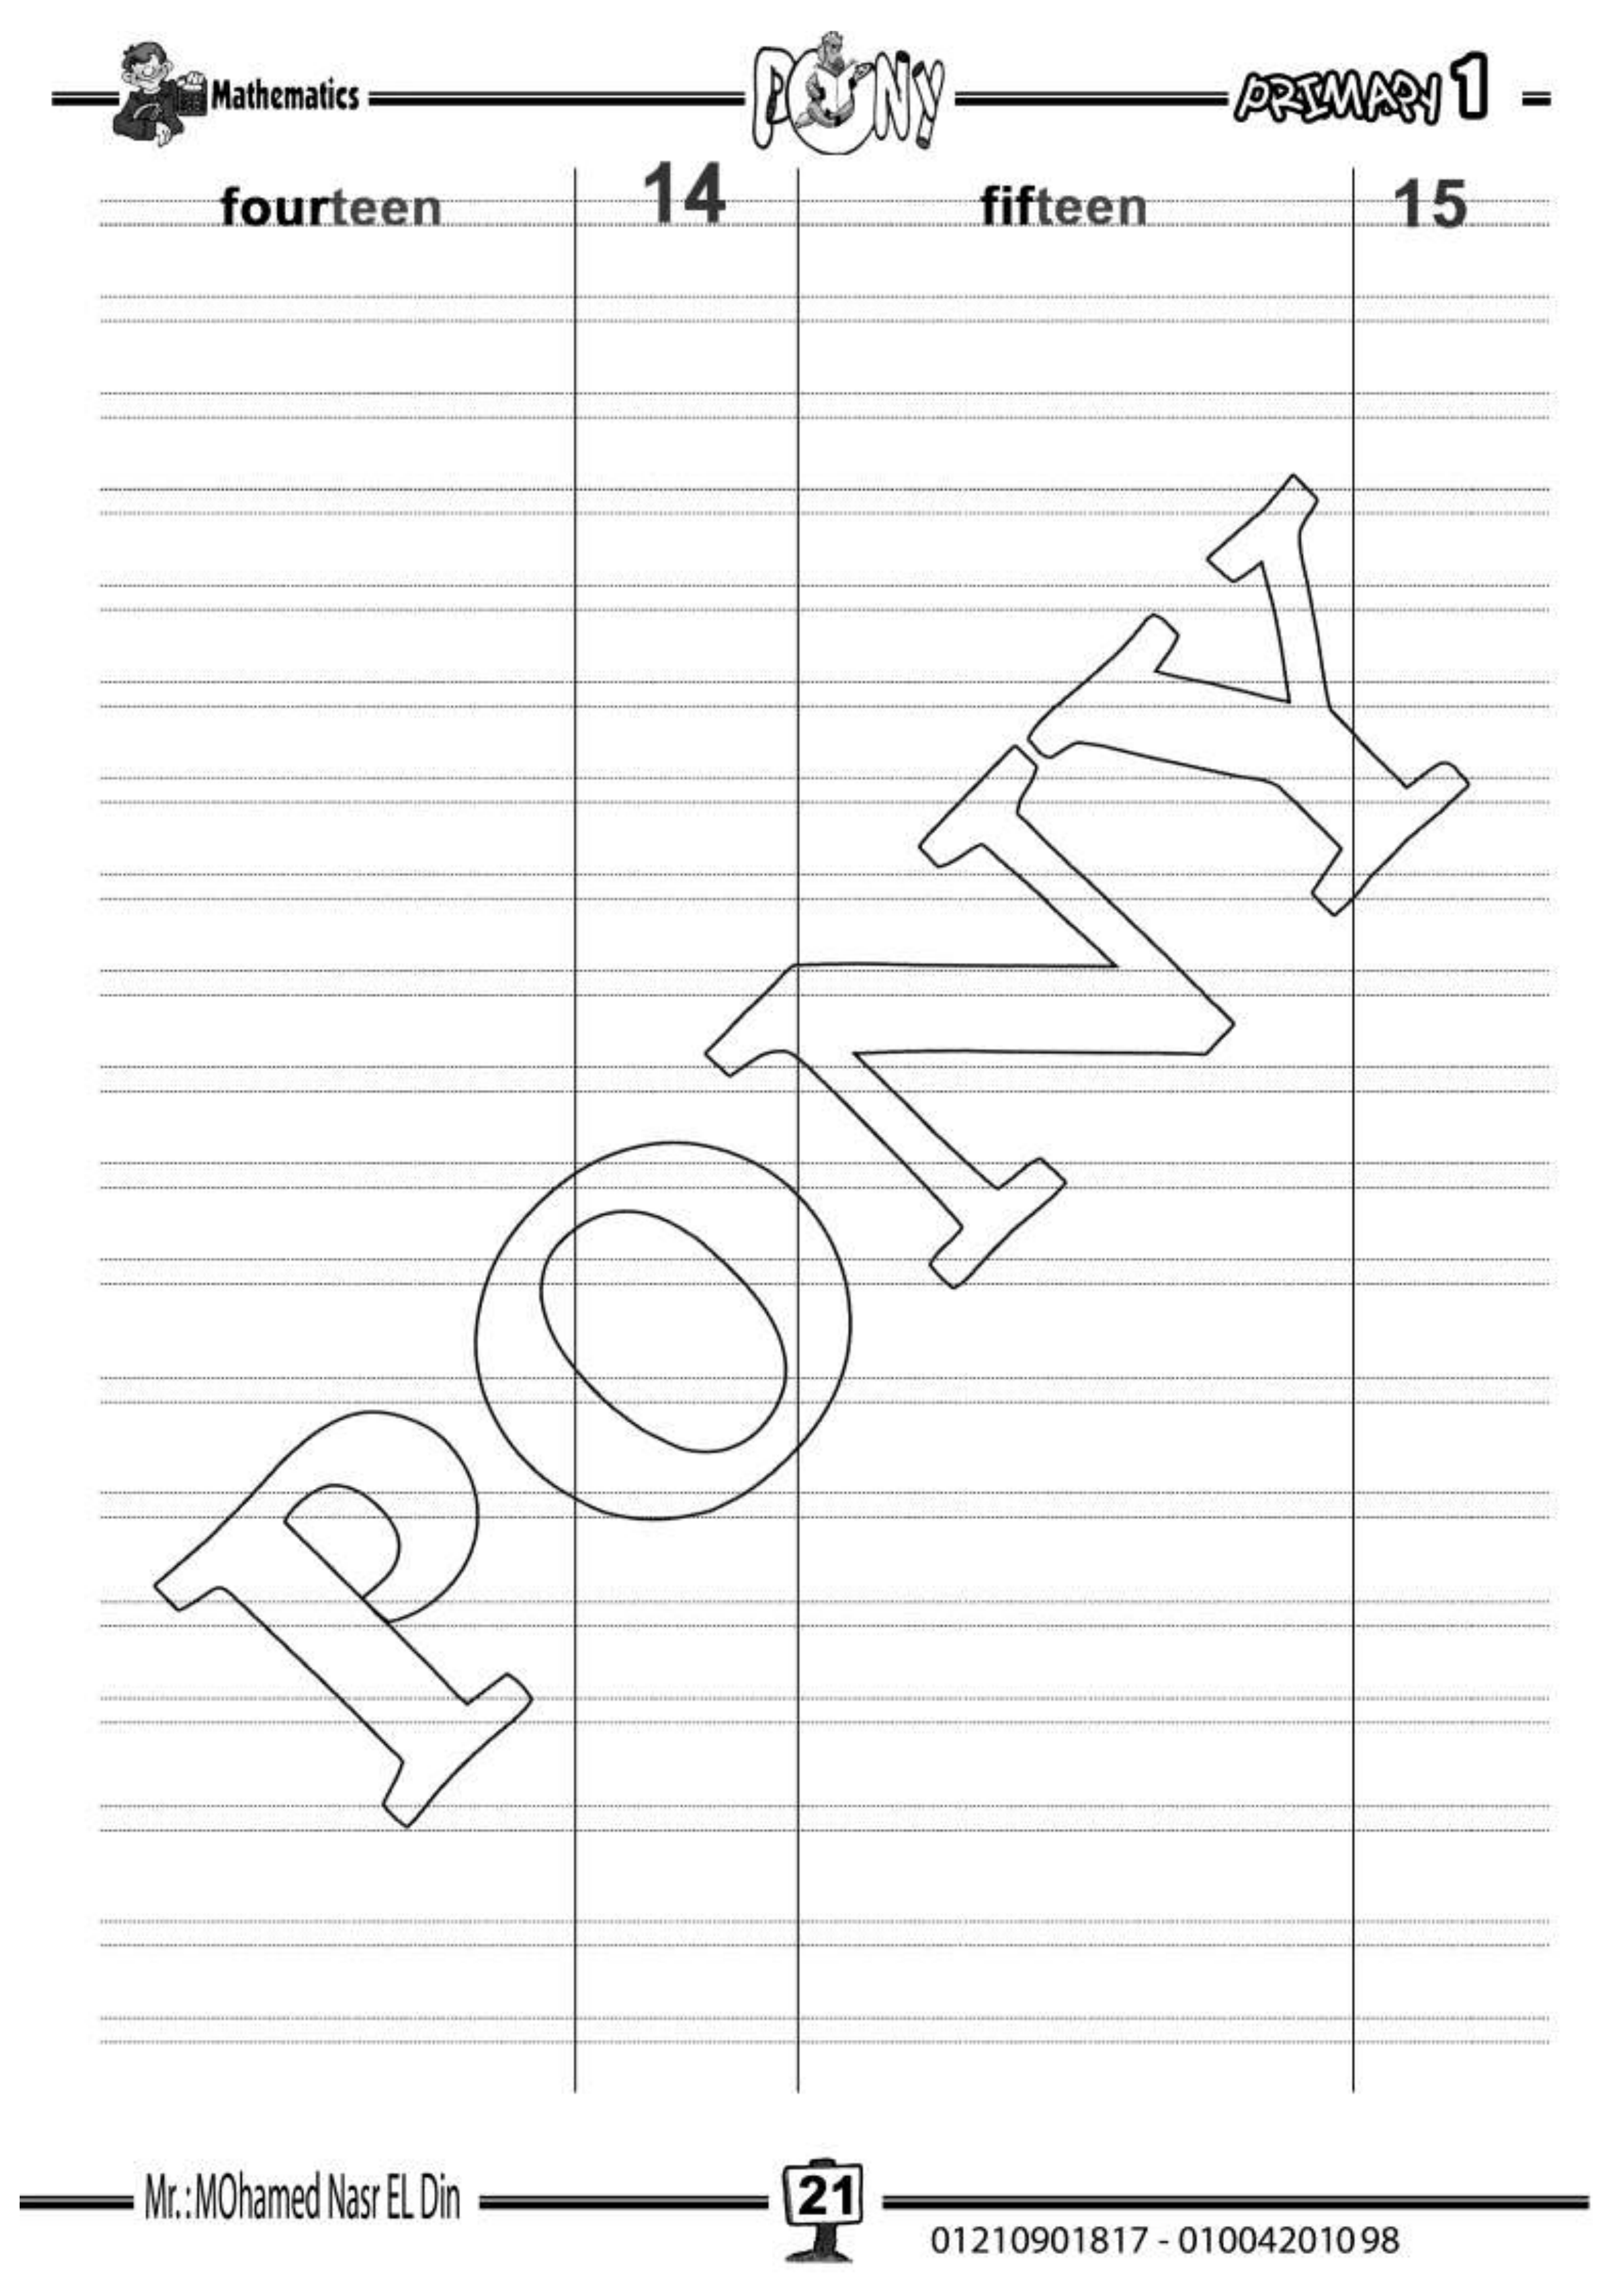 Mathematics PONY PRIMARY 1
fourteen 14 fifteen 15
PONY
Mr.:MOhamed Nasr EL Din 21
01210901817 - 01004201098